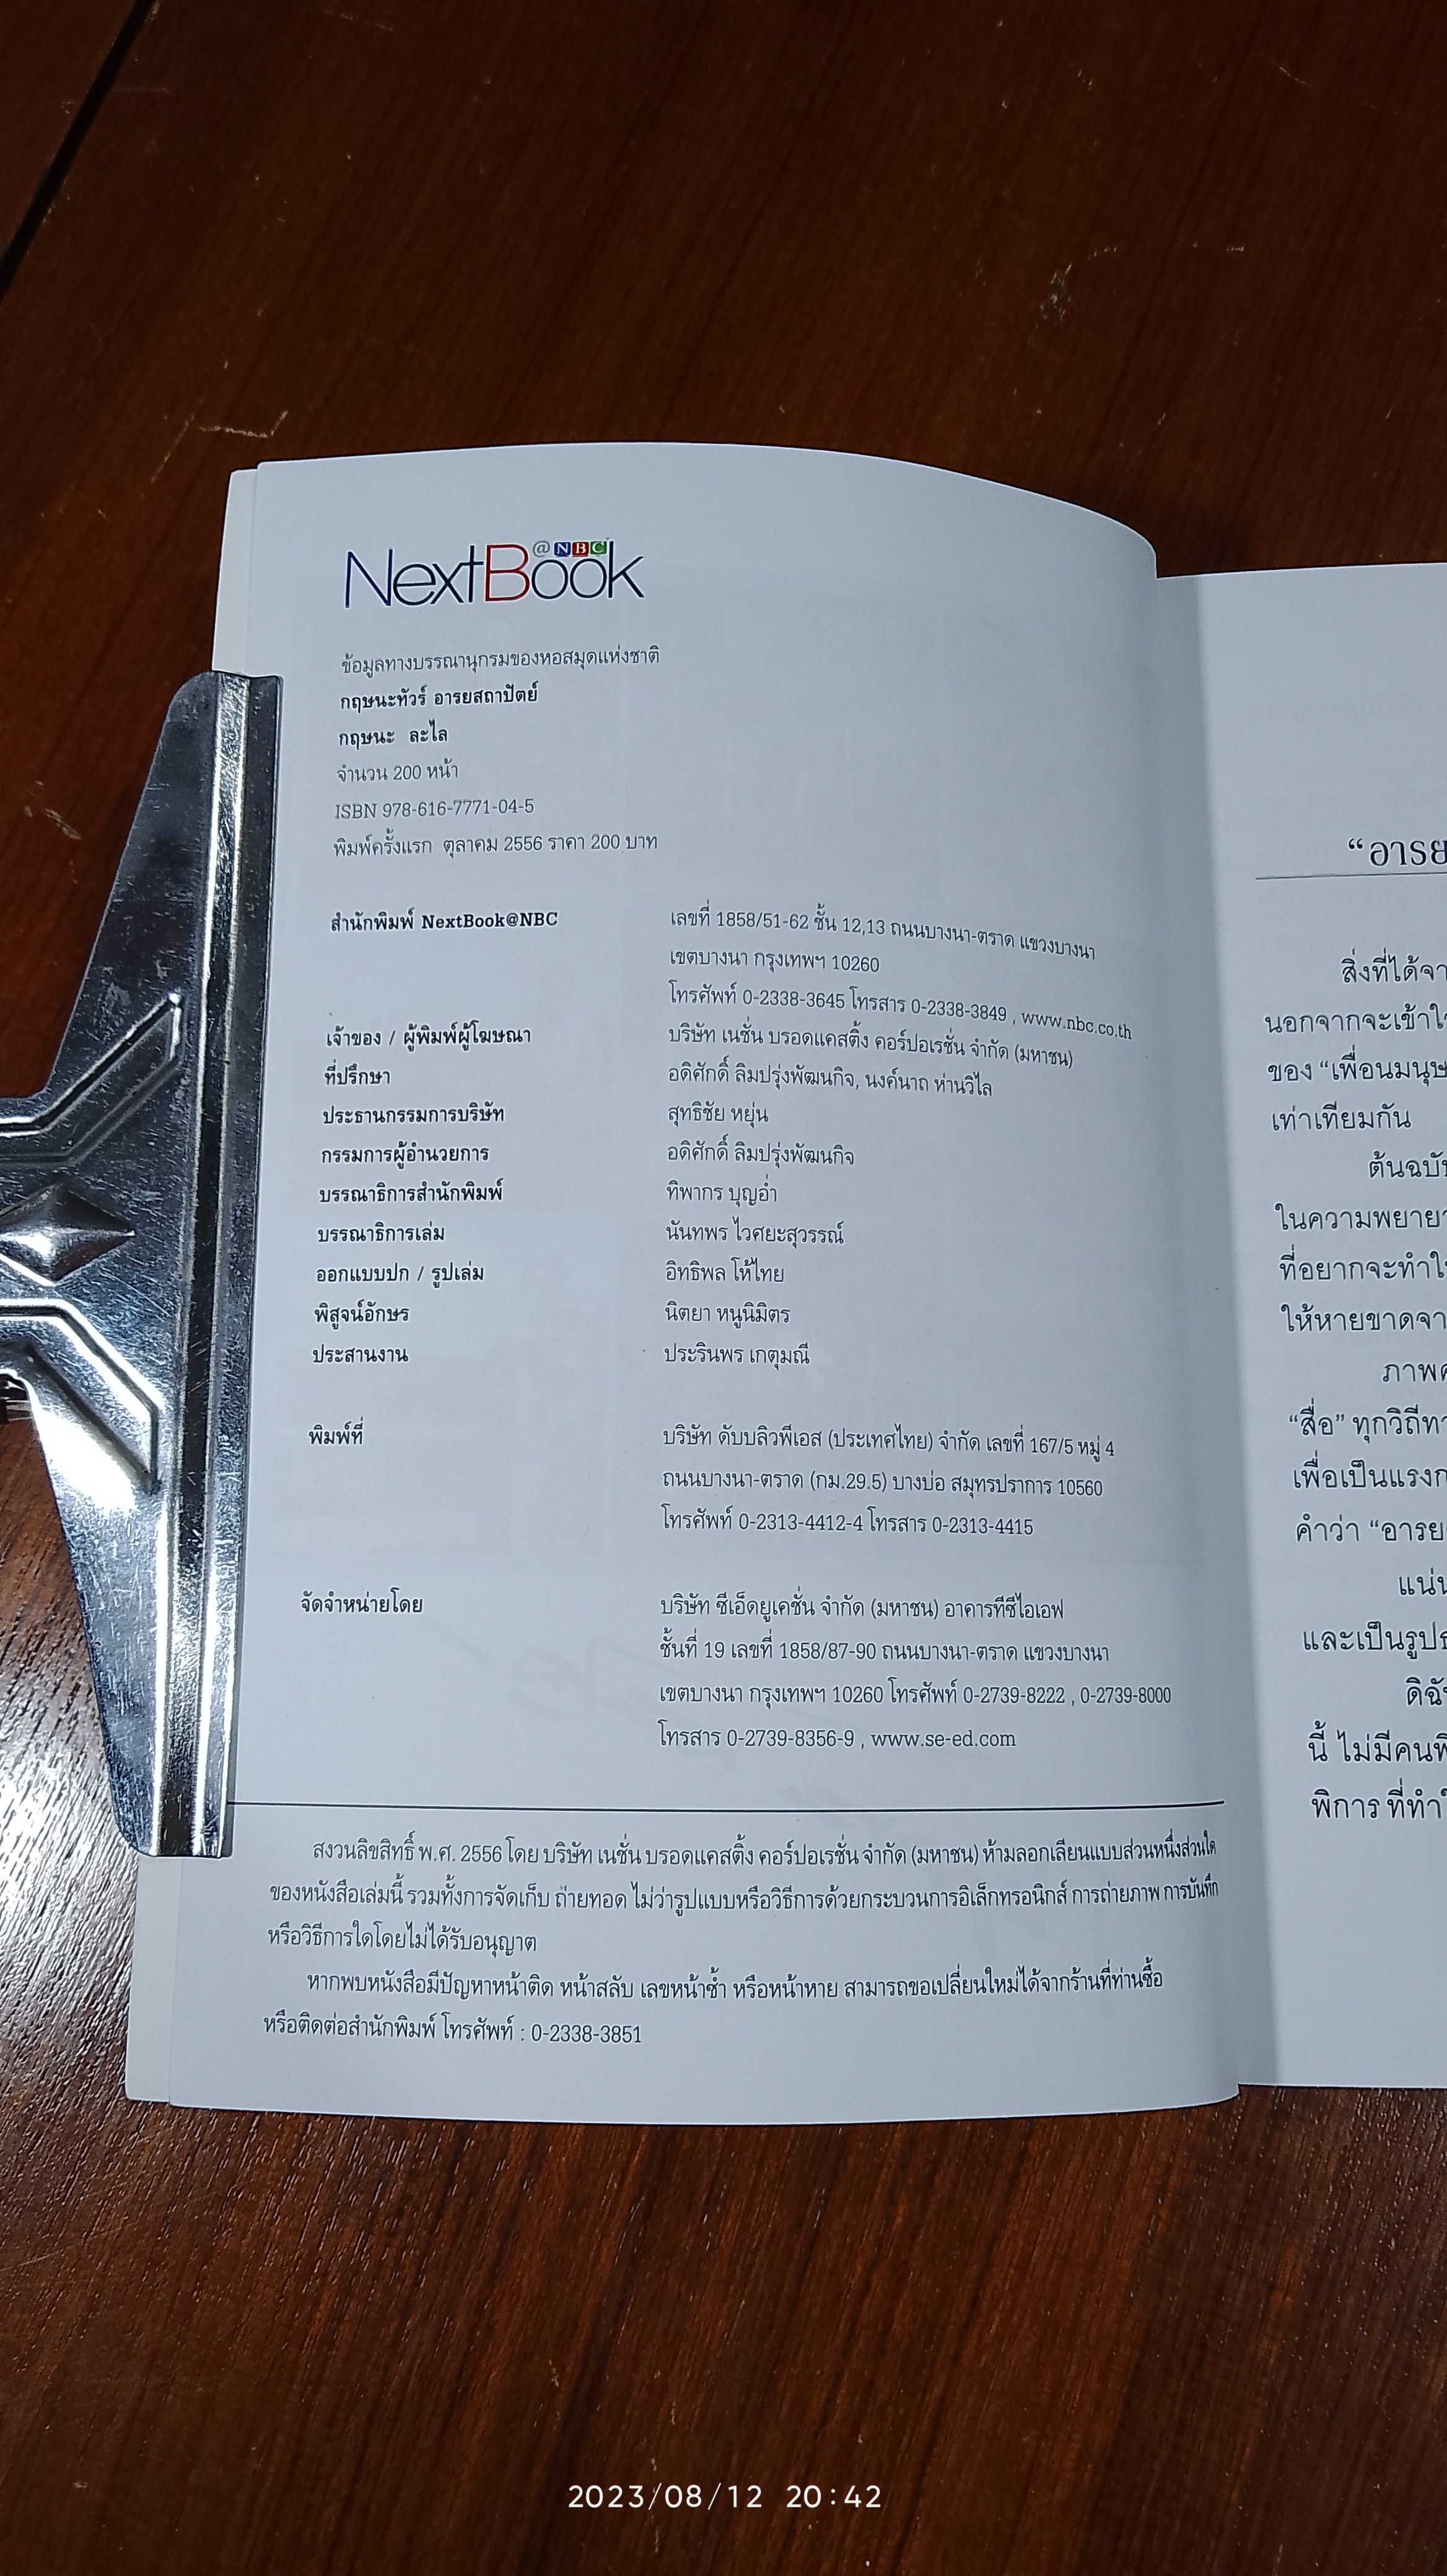 NextBook
@NBC
ข้อมูลทางบรรณานุกรมของหอสมุดแห่งชาติ
กฤษนะทัวร์ อารยสถาปัตย์
กฤษนะ ละไล
จำนวน 200 หน้า
ISBN 978-616-7771-04-5
พิมพ์ครั้งแรก ตุลาคม 2556 ราคา 200 บาท
สำนักพิมพ์ NextBook@NBC เลขที่ 1858/51-62 ชั้น 12,13 ถนนบางนา-ตราด แขวงบางนา
เขตบางนา กรุงเทพฯ 10260
โทรศัพท์ 0-2338-3645 โทรสาร 0-2338-3849 , www.nbc.co.th
เจ้าของ / ผู้พิมพ์ผู้โฆษณา บริษัท เนชั่น บรอดแคสติ้ง คอร์ปอเรชั่น จำกัด (มหาชน)
ที่ปรึกษา อดิศักดิ์ ลิมปรุ่งพัฒนกิจ, นงค์นาถ ห่านวิไล
ประธานกรรมการบริษัท สุทธิชัย หยุ่น
กรรมการผู้อำนวยการ อดิศักดิ์ ลิมปรุ่งพัฒนกิจ
บรรณาธิการสำนักพิมพ์ ทิพากร บุญอ่ำ
บรรณาธิการเล่ม นันทพร ไวศยะสุวรรณ์
ออกแบบปก / รูปเล่ม อิทธิพล โห้ไทย
พิสูจน์อักษร นิตยา หนูนิมิตร
ประสานงาน ประรินพร เกตุมณี
พิมพ์ที่ บริษัท ดับบลิวพีเอส (ประเทศไทย) จำกัด เลขที่ 167/5 หมู่ 4
ถนนบางนา-ตราด (กม.29.5) บางบ่อ สมุทรปราการ 10560
โทรศัพท์ 0-2313-4412-4 โทรสาร 0-2313-4415
จัดจำหน่ายโดย บริษัท ซีเอ็ดยูเคชั่น จำกัด (มหาชน) อาคารทีซีไอเอฟ
ชั้นที่ 19 เลขที่ 1858/87-90 ถนนบางนา-ตราด แขวงบางนา
เขตบางนา กรุงเทพฯ 10260 โทรศัพท์ 0-2739-8222 , 0-2739-8000
โทรสาร 0-2739-8356-9 , www.se-ed.com
สงวนลิขสิทธิ์ พ.ศ. 2556 โดย บริษัท เนชั่น บรอดแคสติ้ง คอร์ปอเรชั่น จำกัด (มหาชน) ห้ามลอกเลียนแบบส่วนหนึ่งส่วนใด
ของหนังสือเล่มนี้ รวมทั้งการจัดเก็บ ถ่ายทอด ไม่ว่ารูปแบบหรือวิธีการด้วยกระบวนการอิเล็กทรอนิกส์ การถ่ายภาพ การบันทึก
หรือวิธีการใดโดยไม่ได้รับอนุญาต
หากพบหนังสือมีปัญหาหน้าติด หน้าสลับ เลขหน้าซ้ำ หรือหน้าหาย สามารถขอเปลี่ยนใหม่ได้จากร้านที่ท่านซื้อ
หรือติดต่อสำนักพิมพ์ โทรศัพท์ : 0-2338-3851
“อารย
สิ่งที่ได้จา
นอกจากจะเข้าใจ
ของ “เพื่อนมนุษ
เท่าเทียมกัน
ต้นฉบับ
ในความพยายา
ที่อยากจะทำให้
ให้หายขาดจา
ภาพ
“สื่อ” ทุกวิถีทา
เพื่อเป็นแรงก
คำว่า “อารย
แน่น
และเป็นรูปธ
ดิฉัน
นี้ ไม่มีคนพิ
พิการ ที่ทำ
2023/08/12 20:42